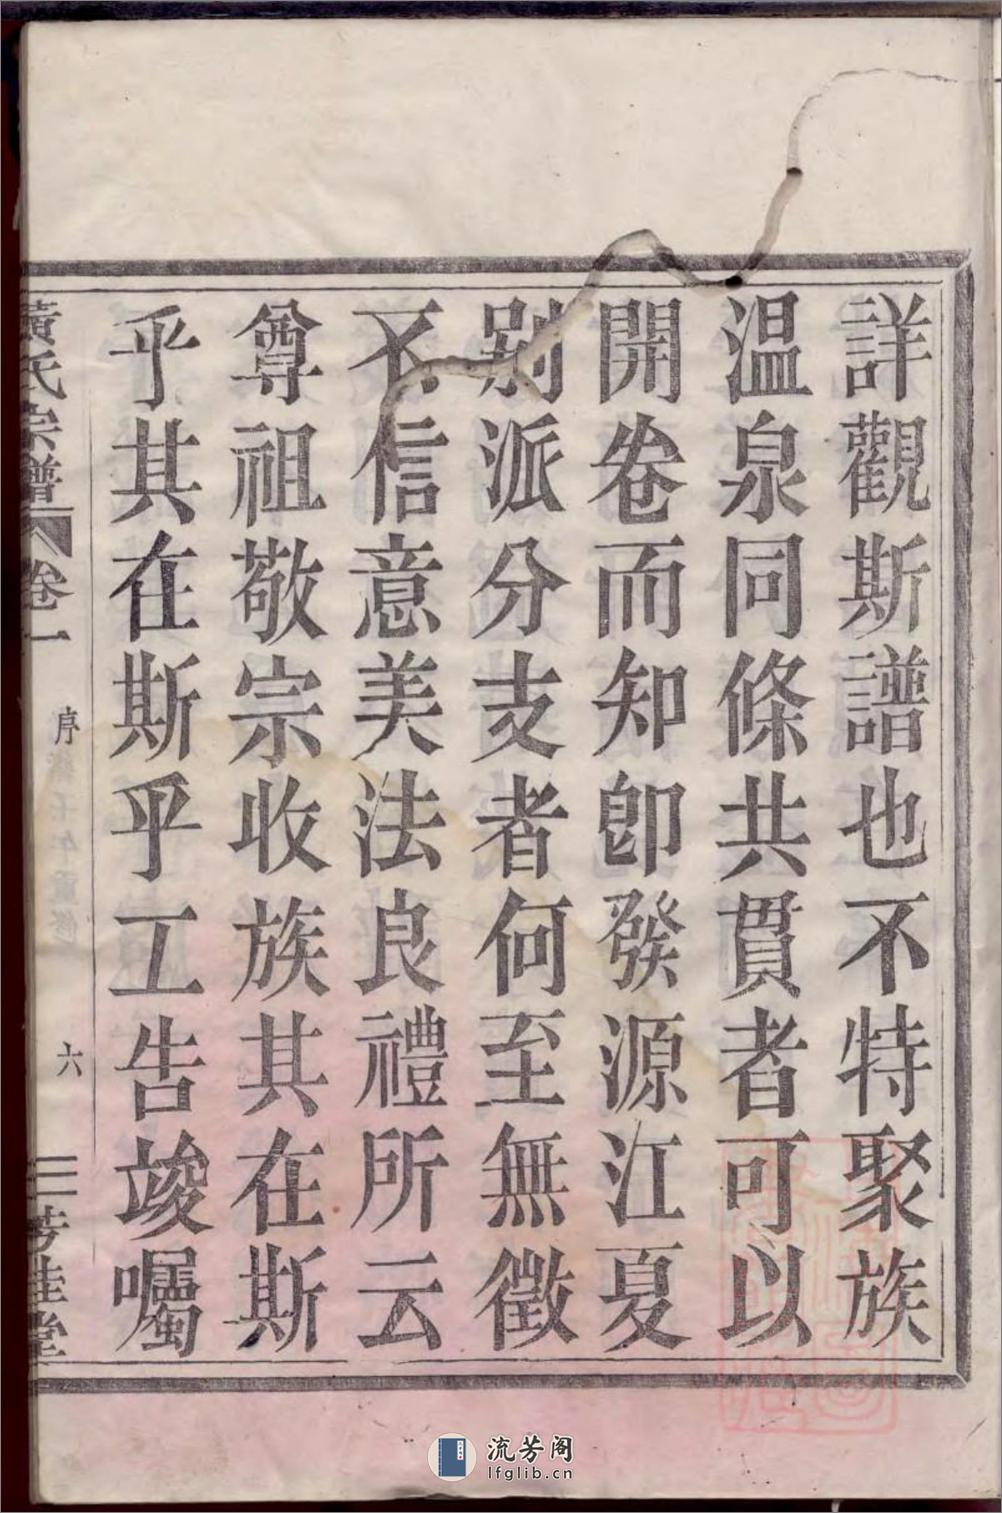 詳觀斯譜也不特聚族
温泉同條共貫者可以
開卷而知卽發源江夏
別派分支者何至無徵
不信意美法良禮所云
尊祖敬宗收族其在斯
乎其在斯乎工告竣囑
黃氏宗譜 卷一 序 壬午重修 六 芳桂堂
流芳阁
lfglib.cn